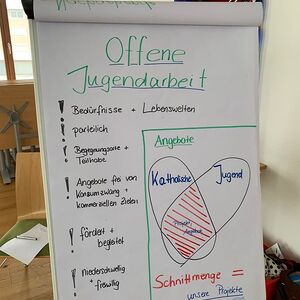 Offene
Jugendarbeit
! Bedürfnisse + Lebenswelten
! parteilich
! Begegnungsorte +
Teilhabe
! Angebote frei von
Konsumzwang +
kommerziellen Zielen
! fördert +
begleitet
! niederschwellig
+
freiwillig
Angebote
Katholische
Jugend
Schnittmenge =
unsere Projekte